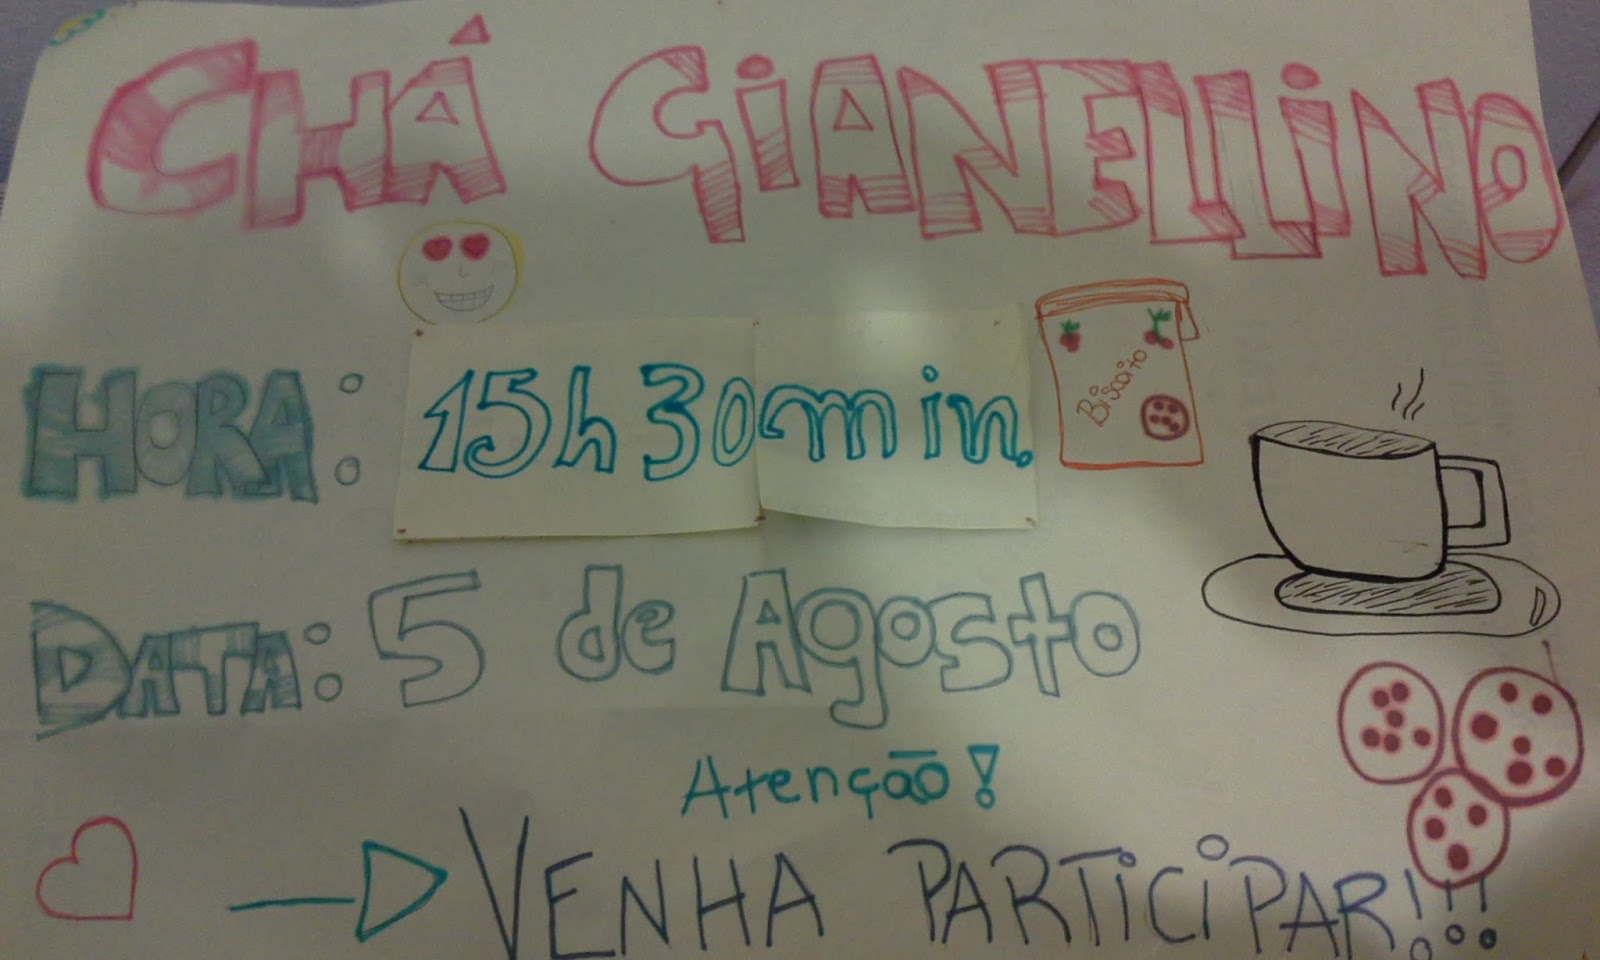 CHÁ GIANELLINO
HORA: 15h30min.
Biscoito
DATA: 5 de Agosto
Atenção!
VENHA PARTICIPAR!!!